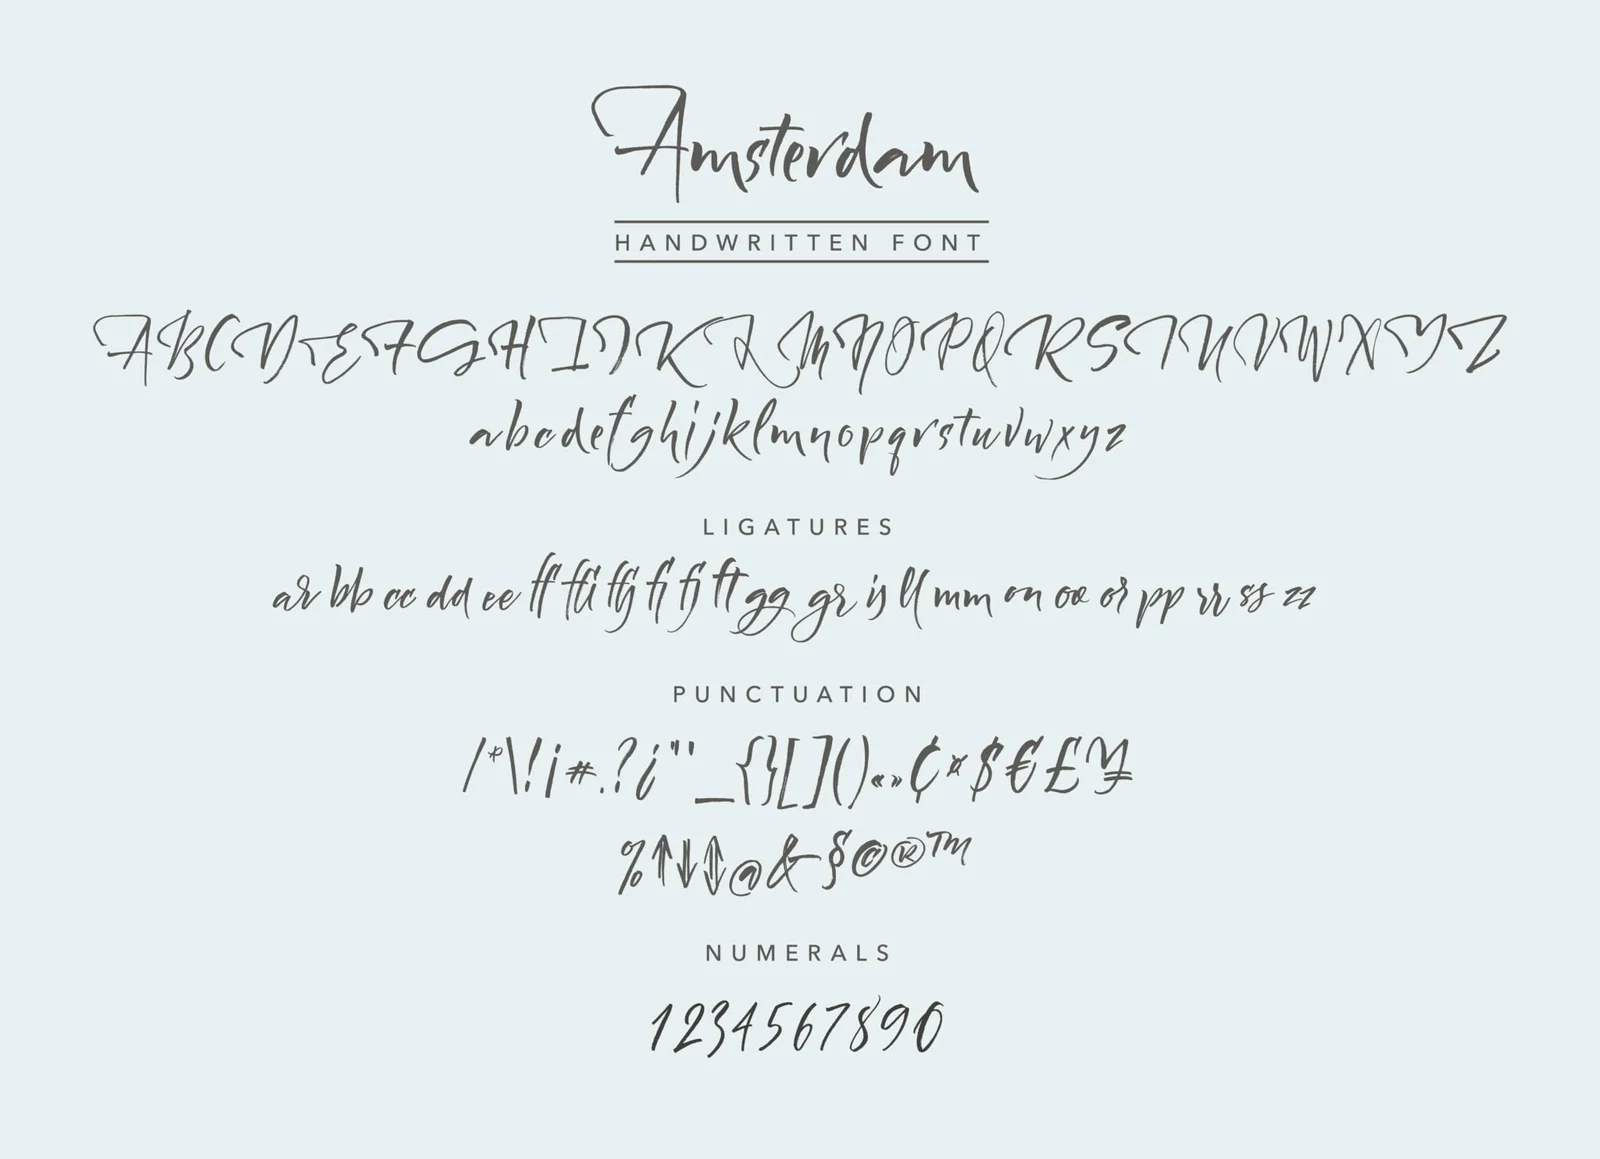 Amsterdam
HANDWRITTEN FONT
ABCDEFGHIJKLMNOPQRSTUVWXYZ
abcdefghijklmnopqrstuvwxyz
LIGATURES
ar bb cc dd ee ff ffi ffj fi fj ft gg gr ij ll mm on oo or pp rr ss zz
PUNCTUATION
/*\!¡#.?¿"'_{}[]()«»¢¤$€£¥
%↑↓↕@&§©®™
NUMERALS
1234567890